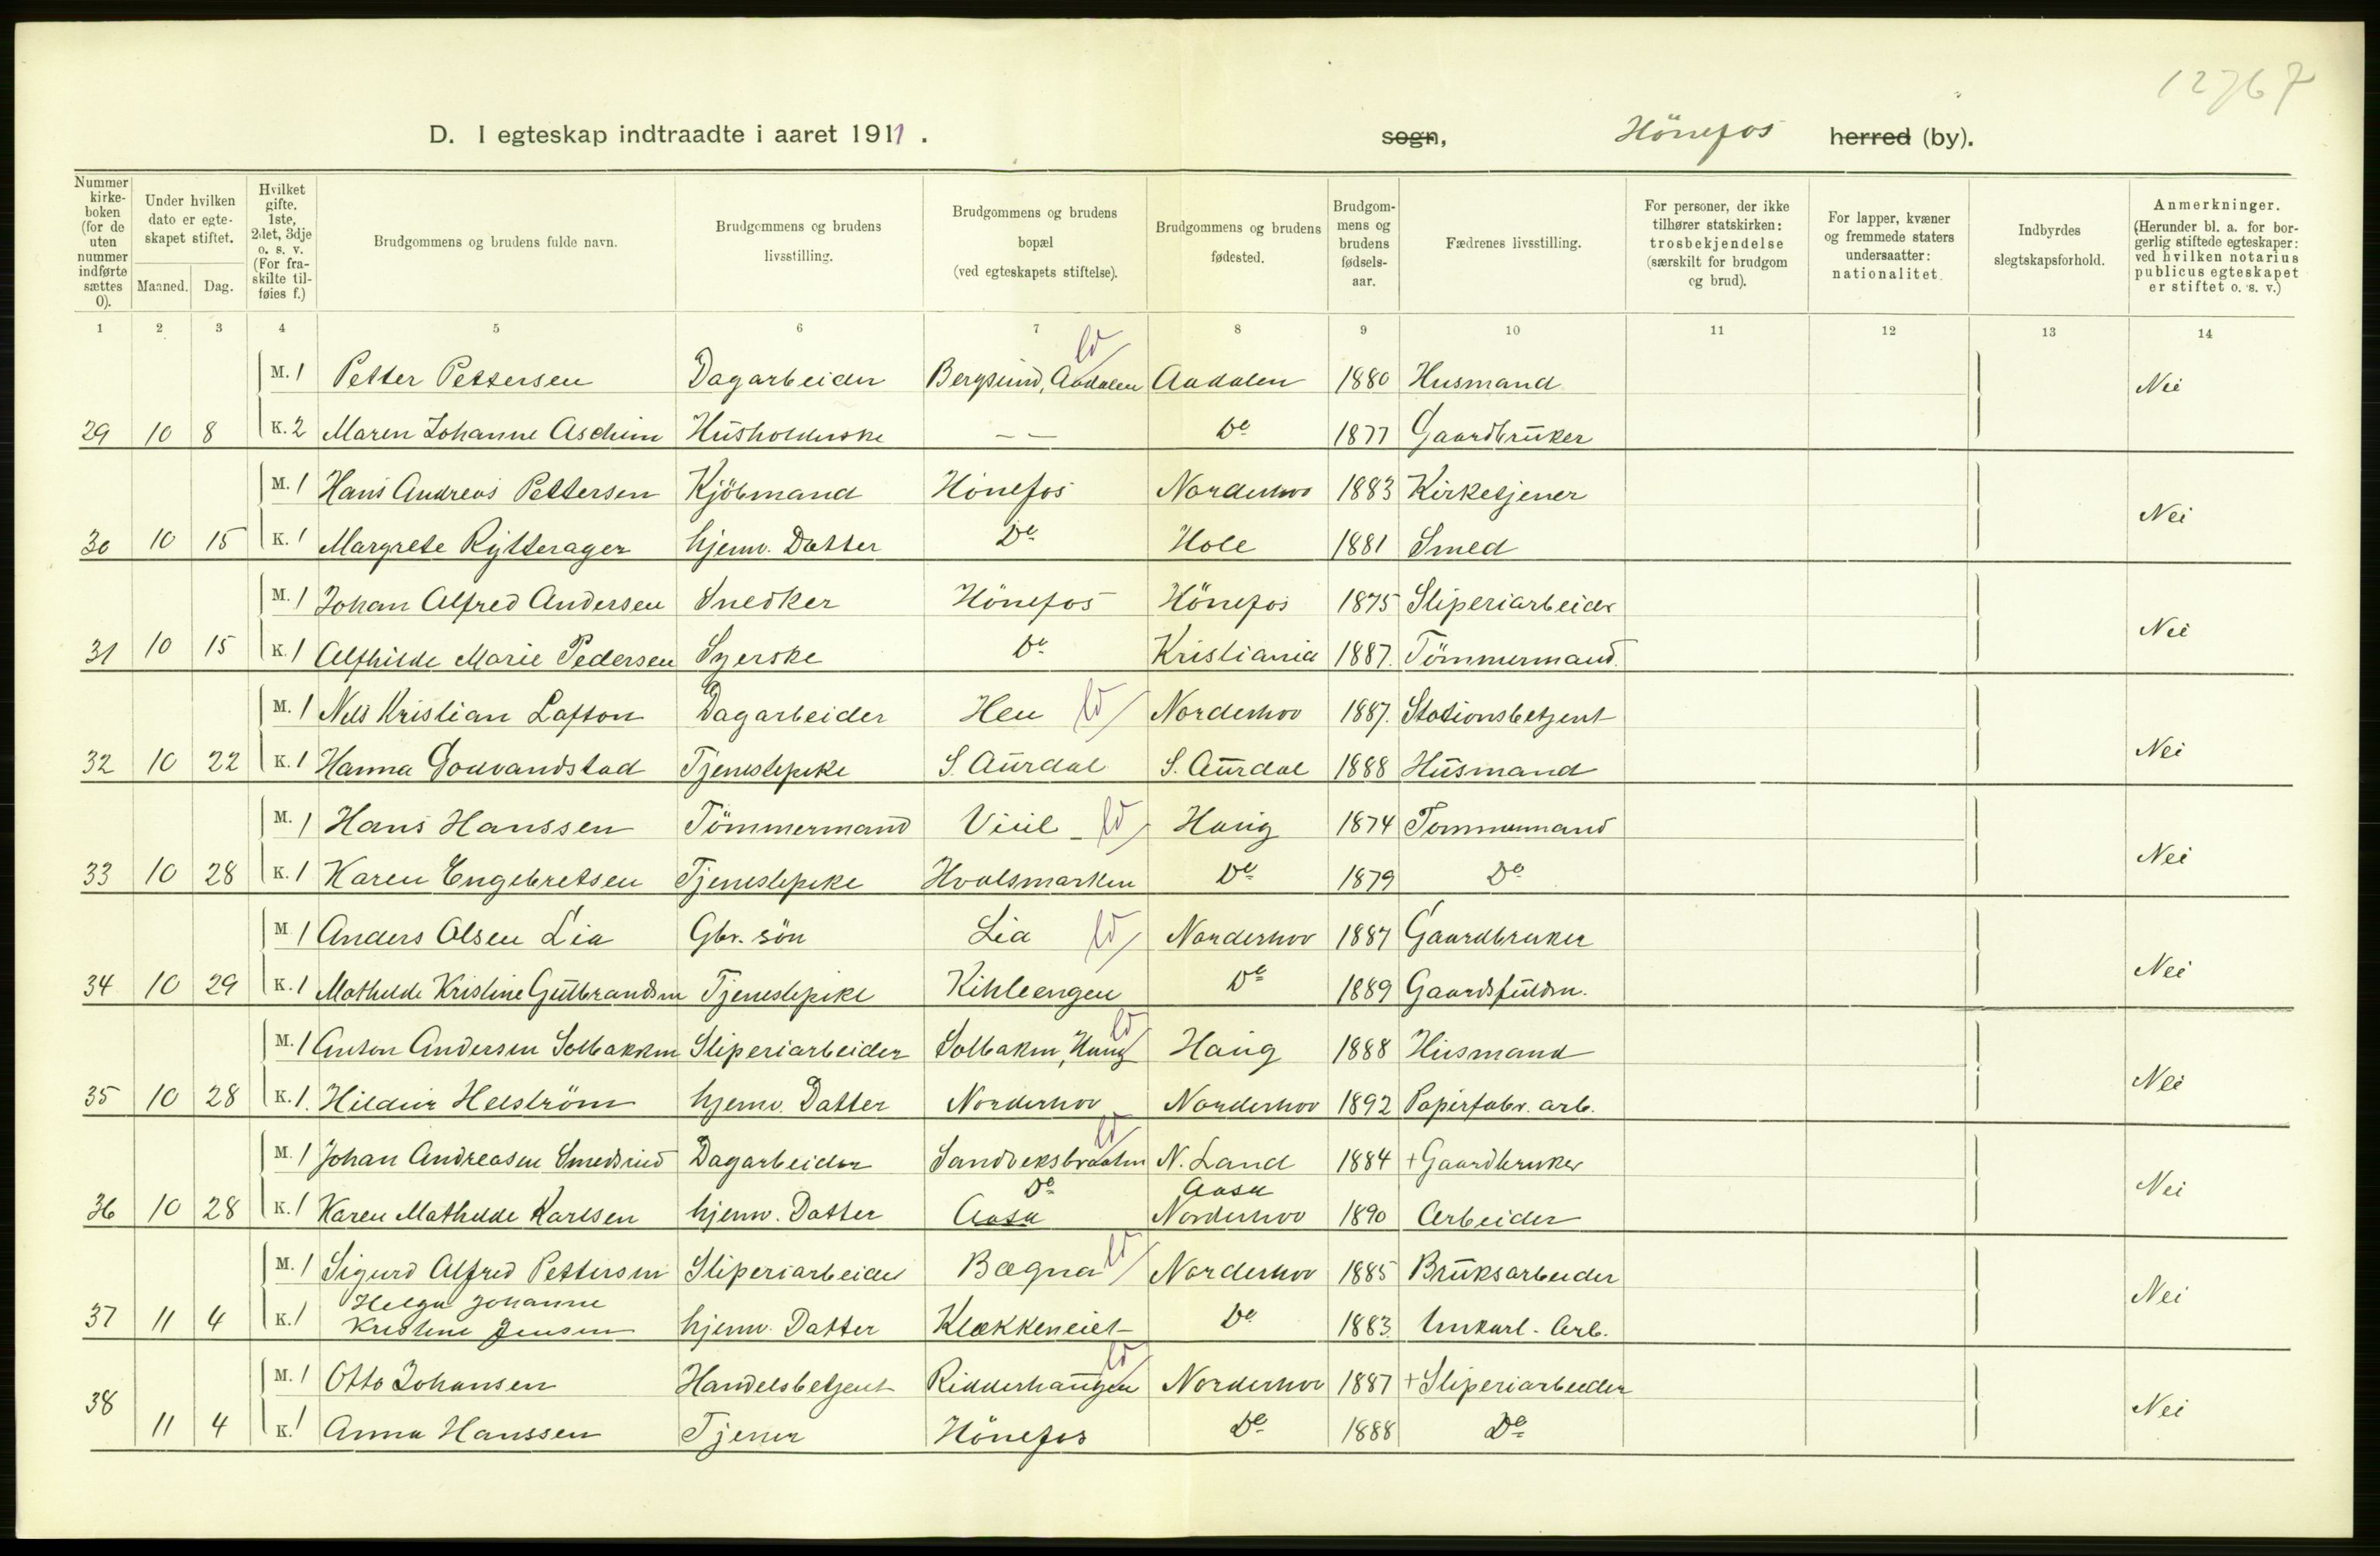 12767
D. I egteskap indtraadte i aaret 1911. sogn, Hönefos herred (by).
Nummer kirkeboken (for de uten nummer indførte sættes 0).
Under hvilken dato er egteskapet stiftet.
Maaned. Dag.
Hvilket gifte. 1ste, 2det, 3dje o. s. v. (For fraskilte tilføies f.)
Brudgommens og brudens fulde navn.
Brudgommens og brudens livsstilling.
Brudgommens og brudens bopæl (ved egteskapets stiftelse).
Brudgommens og brudens fødested.
Brudgommens og brudens fødselsaar.
Fædrenes livsstilling.
For personer, der ikke tilhører statskirken: trosbekjendelse (særskilt for brudgom og brud).
For lapper, kvæner og fremmede staters undersaatter: nationalitet.
Indbyrdes slegtskapsforhold.
Anmerkninger. (Herunder bl. a. for borgerlig stiftede egteskaper: ved hvilken notarius publicus egteskapet er stiftet o. s. v.)
1 2 3 4 5 6 7 8 9 10 11 12 13 14
M. 1 Petter Pettersen Dagarbeider Bergsund, Aadalen Aadalen 1880 Husmand Nei
29 10 8 K. 2 Maren Johanne Aschim Husholderske — — Do 1877 Gaardbruker
M. 1 Hans Andreas Pettersen Kjöbmand Hönefos Norderhov 1883 Kirketjener Nei
30 10 15 K. 1 Margrete Rytterager hjemv. Datter Do Hole 1881 Smed
M. 1 Johan Alfred Andersen Snedker Hönefos Hönefos 1875 Sliperiarbeider Nei
31 10 15 K. 1 Alfhilde Marie Pedersen Syerske Do Kristiania 1887. Tömmermand.
M. 1 Nels Kristian Lafton Dagarbeider Hen Norderhov 1887. Stationsbetjent Nei
32 10 22 K. 1 Hanna Godvandstad Tjenestepike S. Aurdal S. Aurdal 1888 Husmand
M. 1 Hans Hanssen Tömmermand Viul Haug 1874 Tommermand Nei
33 10 28 K. 1 Karen Engebretsen Tjenestepike Hvalsmarken Do 1879 Do
M. 1 Anders Olsen Lia Gbr. sön Lia Norderhov 1887 Gaardbruker Nei
34 10 29 K. 1 Mathilde Kristine Gulbrandsen Tjenestepike Kihleengen Do 1889 Gaardsfuldm.
M. 1 Anton Andersen Solbakken Sliperiarbeider Solbaken, Haug Haug 1888 Husmand Nei
35 10 28 K. 1. Hildur Helström hjemv. Datter Norderhov Norderhov 1892 Papirfabr. arb.
M. 1 Johan Andreasen Smedsrud Dagarbeider Sandveksbraaten N. Land 1884 + Gaardbruker Nei
Do Aasa
36 10 28 K. 1 Karen Mathilde Karlsen hjemv. Datter Aasa Norderhov 1890 Arbeider
M. 1 Sigurd Alfred Pettersen Sliperiarbeider Bægna Norderhov 1885 Bruksarbeider Nei
Helga Johanne
37 11 4 K. 1 Kristine Jensen hjemv. Datter Klækkeneiet Do 1883 Arb.
M. 1 Otto Johansen Handelsbetjent Ridderhaugen Norderhov 1887 + Sliperiarbeider Nei
38 11 4 K. 1 Anna Hanssen Tjener Hönefos Do 1888 Do